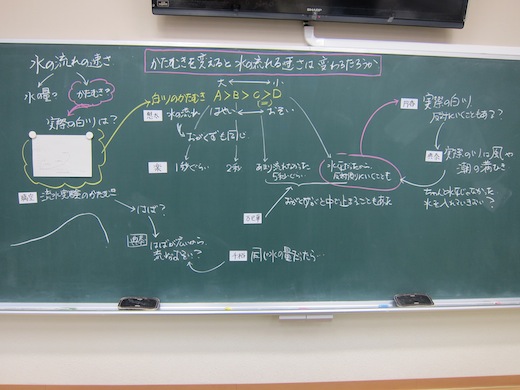 SHARP
かたむきを変えると水の流れる速さは変わるだろうか
水の流れの速さ
水の量?
かたむき?
実際の白川は?
大 ↔ 小
白川のかたむき A>B>C>D
水の流れ はやい ↔ おそい
おがくずも同じ
1秒ぐらい
2秒
あまり流れなかった
5秒ぐらい
反対側にいくことも
おがくずなど中で止まることもある
流水実験のかたむき
はば?
はばが広いから
流れがおそい?
同じ水の量だったら…
実際の白川
反対にいくこともある?
実際の川は風や
潮の満ひき
ちゃんと水平じゃなかった
水を入れていきおい?